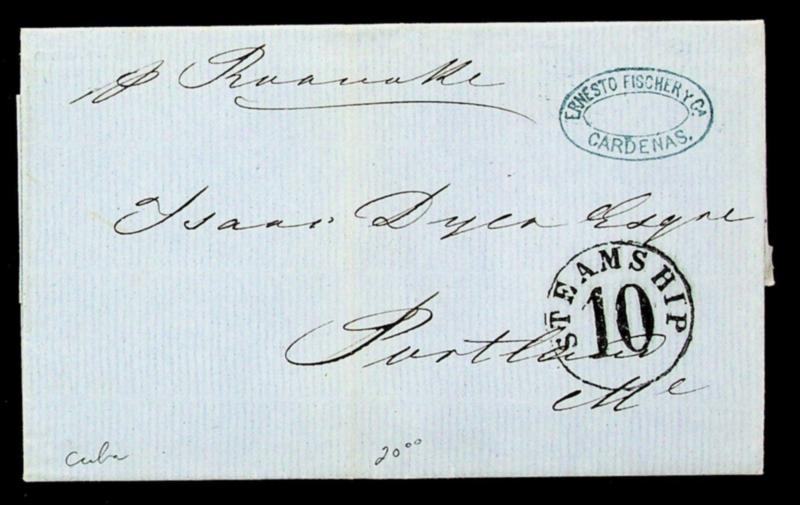 pr Roanoke
ERNESTO FISCHER Y CA
CARDENAS.
Isaac Dyer Esqre
STEAMSHIP
10
Portland
Me
Cuba
20 00